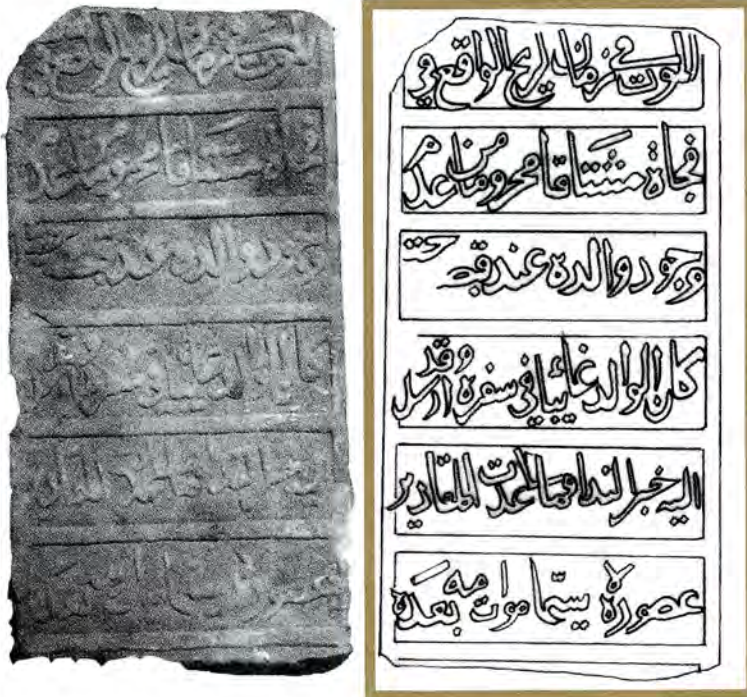 الموت في زمان لريح الواقع في
فجاة مشتاقا محروما من عدم
وجود والده عند
كان الوالد غايبا في سفره وقد ارسل
اليه خبر الندا المقادير
عصوره سيما موت امه بعده